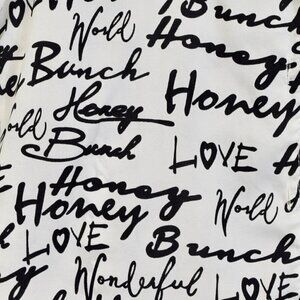 LOVE Bunch
World Honey
Bunch
Honey Honey
World
Bunch LOVE
Honey
Honey World
LOVE Bunch
Wonderful